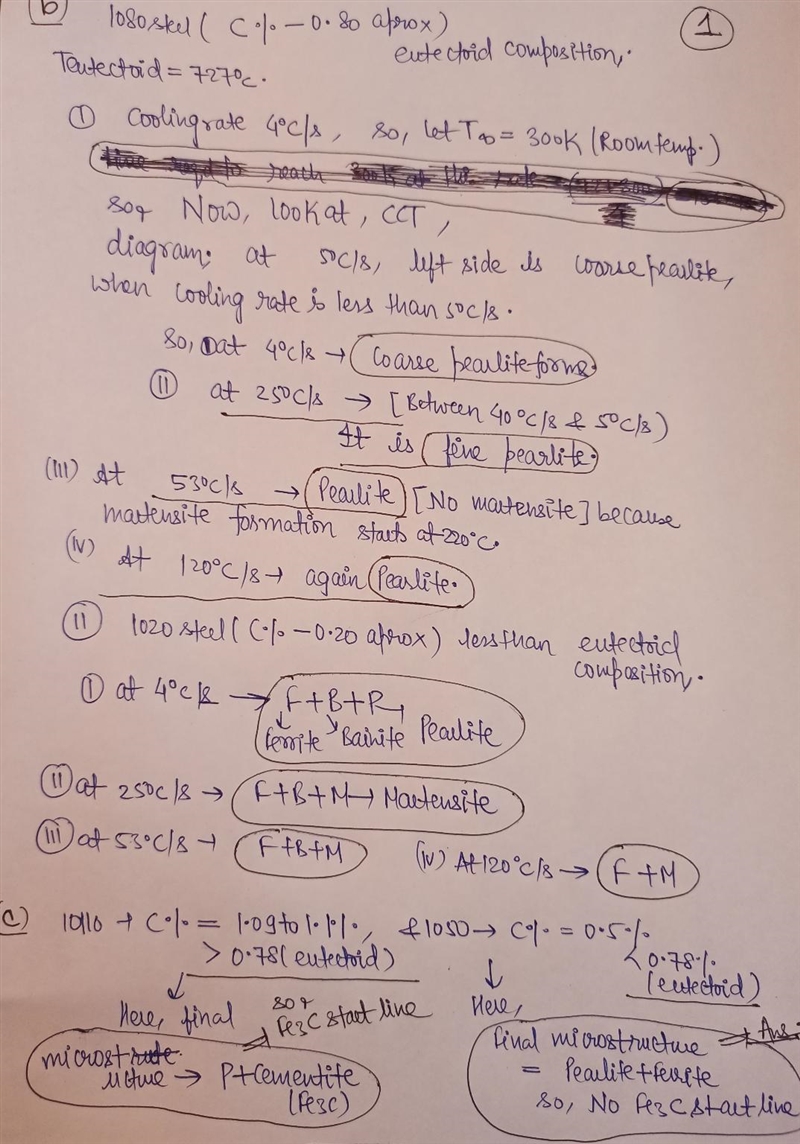 b) 1080 steel ( C% - 0.80 aprox)
1
eutectoid composition,.
Teutectoid = 727°c.
① Cooling rate 4°C/s, so, let T∞ = 300K (Room temp.)
so, Now, look at, CCT,
diagram; at 5°C/s, left side is coarse pearlite,
when cooling rate is less than 5°C/s.
so, at 4°C/s → Coarse pearlite forms.
Ⅱ at 25°C/s → [Between 40°C/s & 5°C/s)
It is fine pearlite.
(III) At 53°C/s → Pearlite [No martensite] because
martensite formation starts at 220°C.
(iv) At 120°C/s → again Pearlite.
Ⅱ 1020 steel ( C% - 0.20 aprox) less than eutectoid
composition.
① at 4°c/s → F+B+P
Ferrite Bainite Pearlite
Ⅱ at 25°C/s → F+B+M → Martensite
Ⅲ at 53°C/s → F+B+M (iv) At 120°C/s → F+M
(C) 10110 → C% = 1.09 to 1.1%, & 1050 → C% = 0.5%
> 0.78 (eutectoid) < 0.78% (eutectoid)
Here, final so, Fe3C start line
microstructure → P+Cementite (Fe3C)
Here,
final microstructure → Ans.
= Pearlite + ferrite
so, No Fe3C start line